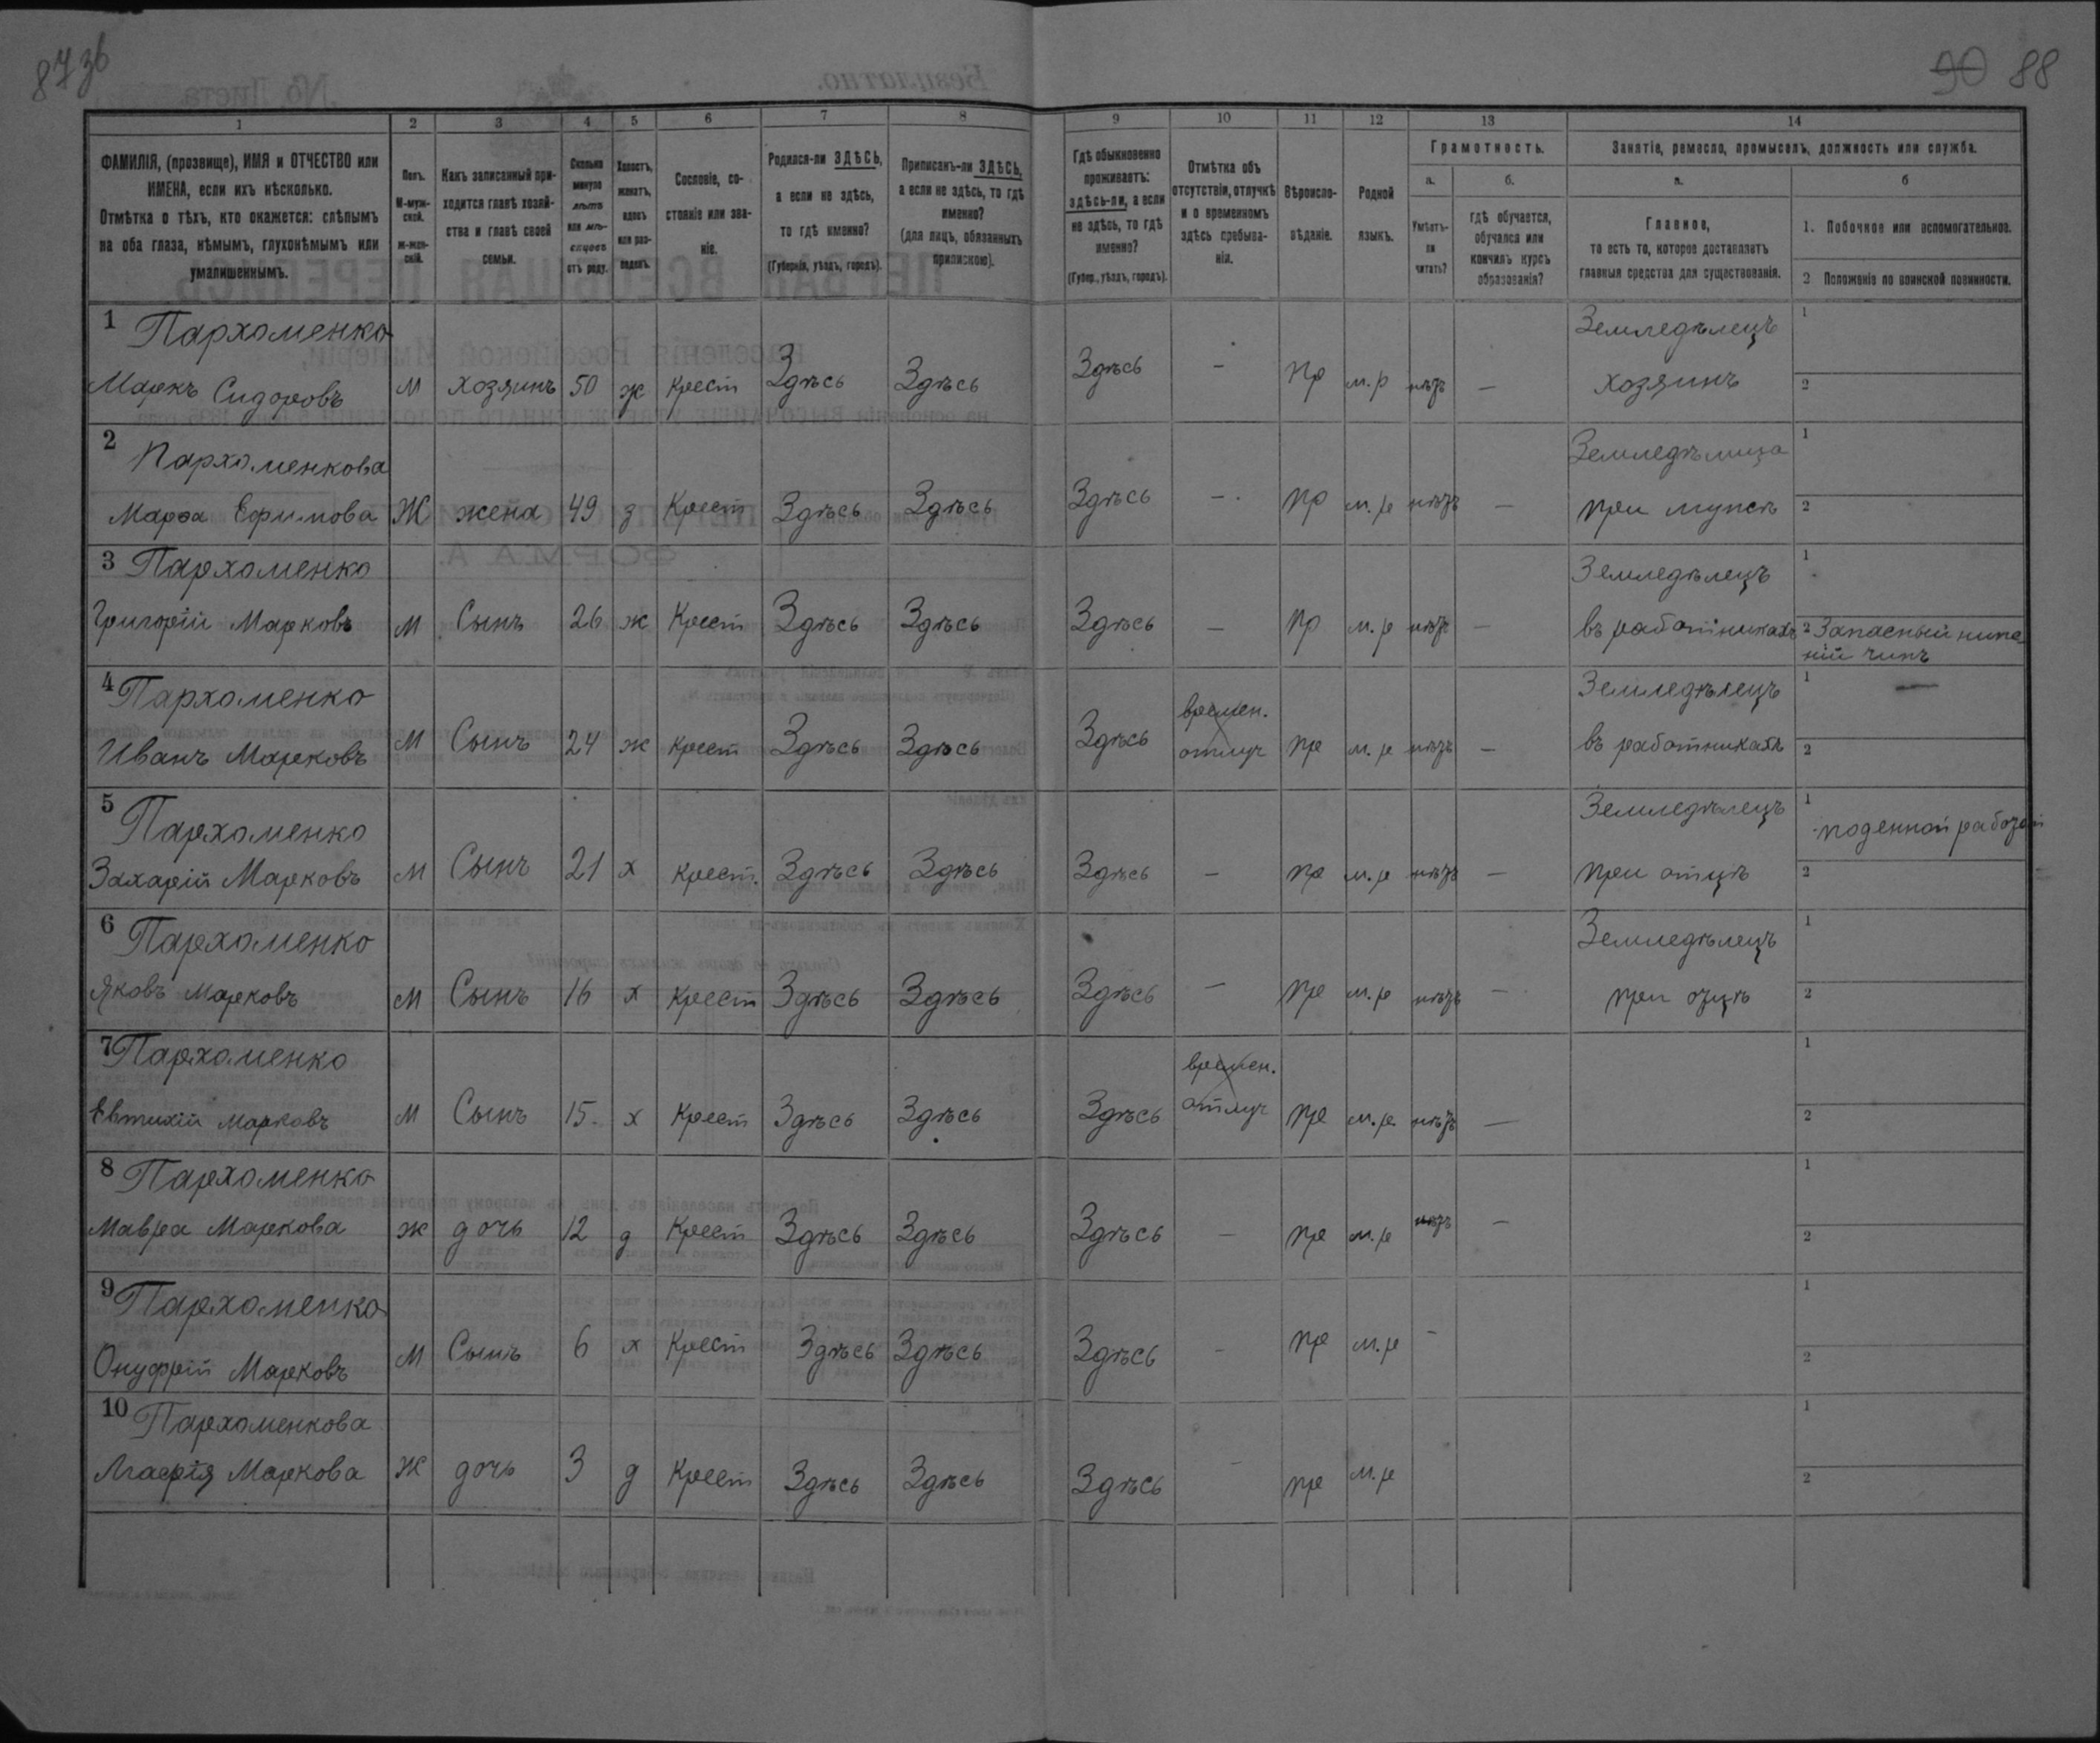 87 зб
90 88
1 2 3 4 5 6 7 8 9 10 11 12 13 14
ФАМИЛІЯ, (прозвище), ИМЯ и ОТЧЕСТВО или ИМЕНА, если ихъ нѣсколько.
Отмѣтка о тѣхъ, кто окажется: слѣпымъ на оба глаза, нѣмымъ, глухонѣмымъ или умалишеннымъ.
Полъ. М-мужской. ж-женскій.
Какъ записанный приходится главѣ хозяйства и главѣ своей семьи.
Сколько минуло лѣтъ или мѣсяцевъ отъ роду.
Холостъ, женатъ, вдовъ или разведенъ.
Сословіе, состояніе или званіе.
Родился-ли ЗДѢСЬ, а если не здѣсь, то гдѣ именно?
(Губернія, уѣздъ, городъ).
Приписанъ-ли ЗДѢСЬ, а если не здѣсь, то гдѣ именно?
(для лицъ, обязанныхъ припискою).
Гдѣ обыкновенно проживаетъ: здѣсь-ли, а если не здѣсь, то гдѣ именно?
(Губер., уѣздъ, городъ).
Отмѣтка объ отсутствіи, отлучкѣ и о временномъ здѣсь пребываніи.
Вѣроисповѣданіе.
Родной языкъ.
Грамотность.
а.
Умѣетъ-ли читать?
б.
гдѣ обучается, обучался или кончилъ курсъ образованія?
Занятіе, ремесло, промыселъ, должность или служба.
а.
Главное,
то есть то, которое доставляетъ главныя средства для существованія.
б
1. Побочное или вспомогательное.
2 Положеніе по воинской повинности.
1 Пархоменко Земледѣлецъ 1
Маркъ Сидоровъ М хозяинъ 50 ж Крест Здѣсь Здѣсь Здѣсь - пр м.р нѣтъ - хозяинъ 2
2 Пархоменкова Земледѣлица 1
Марѳа Ефимова Ж жена 49 з Крест Здѣсь Здѣсь Здѣсь - пр м.р нѣтъ - при мужѣ 2
3 Пархоменко Земледѣлецъ 1
Григорій Марковъ М Сынъ 26 ж Крест Здѣсь Здѣсь Здѣсь - пр м.р нѣтъ - въ работникахъ 2 Запасный ниж-
ній чинъ
4 Пархоменко времен. Земледѣлецъ 1 -
Иванъ Марковъ М Сынъ 24 ж Крест Здѣсь Здѣсь Здѣсь отлуч пр м.р нѣтъ - въ работникахъ 2
5 Пархоменко Земледѣлецъ 1 поденной
Захарій Марковъ М Сынъ 21 х Крест. Здѣсь Здѣсь Здѣсь - пр м.р нѣтъ - при отцѣ 2
6 Пархоменко Земледѣлецъ 1
Яковъ Марковъ М Сынъ 16 х Крест Здѣсь Здѣсь Здѣсь - пр м.р нѣтъ - при отцѣ 2
7 Пархоменко времен. 1
Евтихій Марковъ М Сынъ 15. х Крест Здѣсь Здѣсь Здѣсь отлуч пр м.р. нѣтъ - 2
8 Пархоменко 1
Мавра Маркова ж дочь 12 д Крест Здѣсь Здѣсь Здѣсь - пр м.р нѣтъ - 2
9 Пархоменко 1
Онуфрій Марковъ М Сынъ 6 х Крест Здѣсь Здѣсь Здѣсь - пр м.р - 2
10 Пархоменкова 1
Агафія Маркова Ж дочь 3 д Крест Здѣсь Здѣсь Здѣсь - пр м.р 2